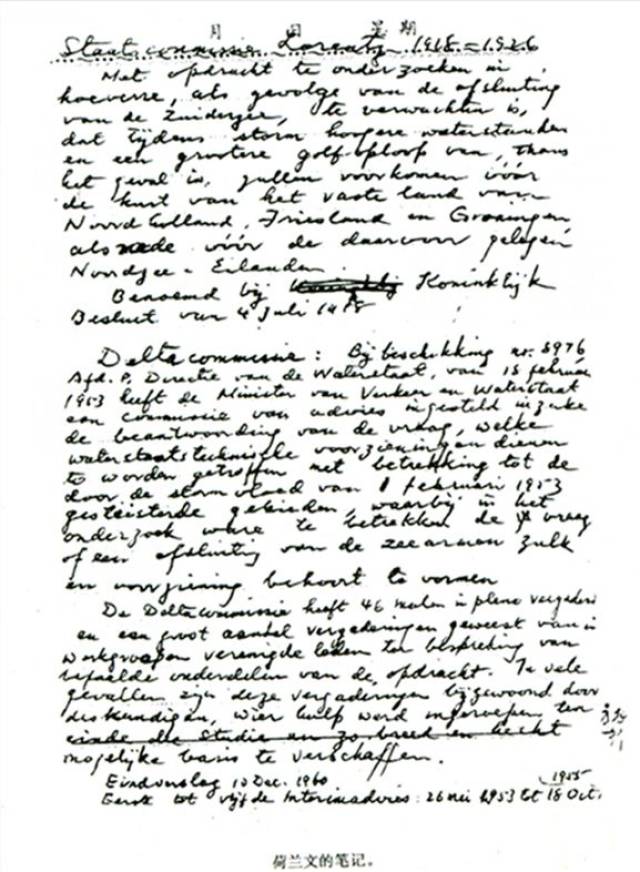 月 日 星期
Staatscommissie Lorentz 1918=1926
Met opdracht te onderzoeken in
hoeverre, als gevolge van de afsluiting
van de Zuiderzee, te verwachten is,
dat tijdens storm hoogere waterstanden
en een grootere golfoploop van, thans
het geval is, zullen voorkomen vóór
de kust van het vaste land van
Noord Holland, Friesland en Groningen
alsmede vóór de daarvoor gelegen
Noordzee-Eilanden
Benoemd bij Koninklijk
Besluit van 4 Juli 1918
Deltacommissie: Bij beschikking nr. 5976
Afd. P. Directie van de Waterstaat, van 18 februari
1953 heeft de Minister van Verkeer en Waterstaat
een commissie van advies ingesteld inzake
de beantwoording van de vraag, welke
waterstaatstechnische voorzieningen dienen
te worden getroffen met betrekking tot de
door de stormvloed van 1 februari 1953
geteisterde gebieden, waarbij in het
onderzoek ware te betrekken de vraag
of een afsluiting van de zeearmen zulk
en voorziening behoort te vormen
De Deltacommissie heeft 46 malen in pleno vergaderd
en een groot aantal vergaderingen geweest van in
werkgroepen verenigde leden ter bespreking van
bepaalde onderdelen van de opdracht. In vele
gevallen zijn deze vergaderingen bijgewoond door
deskundigen, wier hulp werd ingeroepen ten
einde de studie een zo breed en hecht
mogelijke basis te verschaffen.
Eindverslag 10 Dec. 1960
1955
Eerste tot vijfde Interimadvies: 26 mei 1953 tot 18 Oct.
荷兰文的笔记。